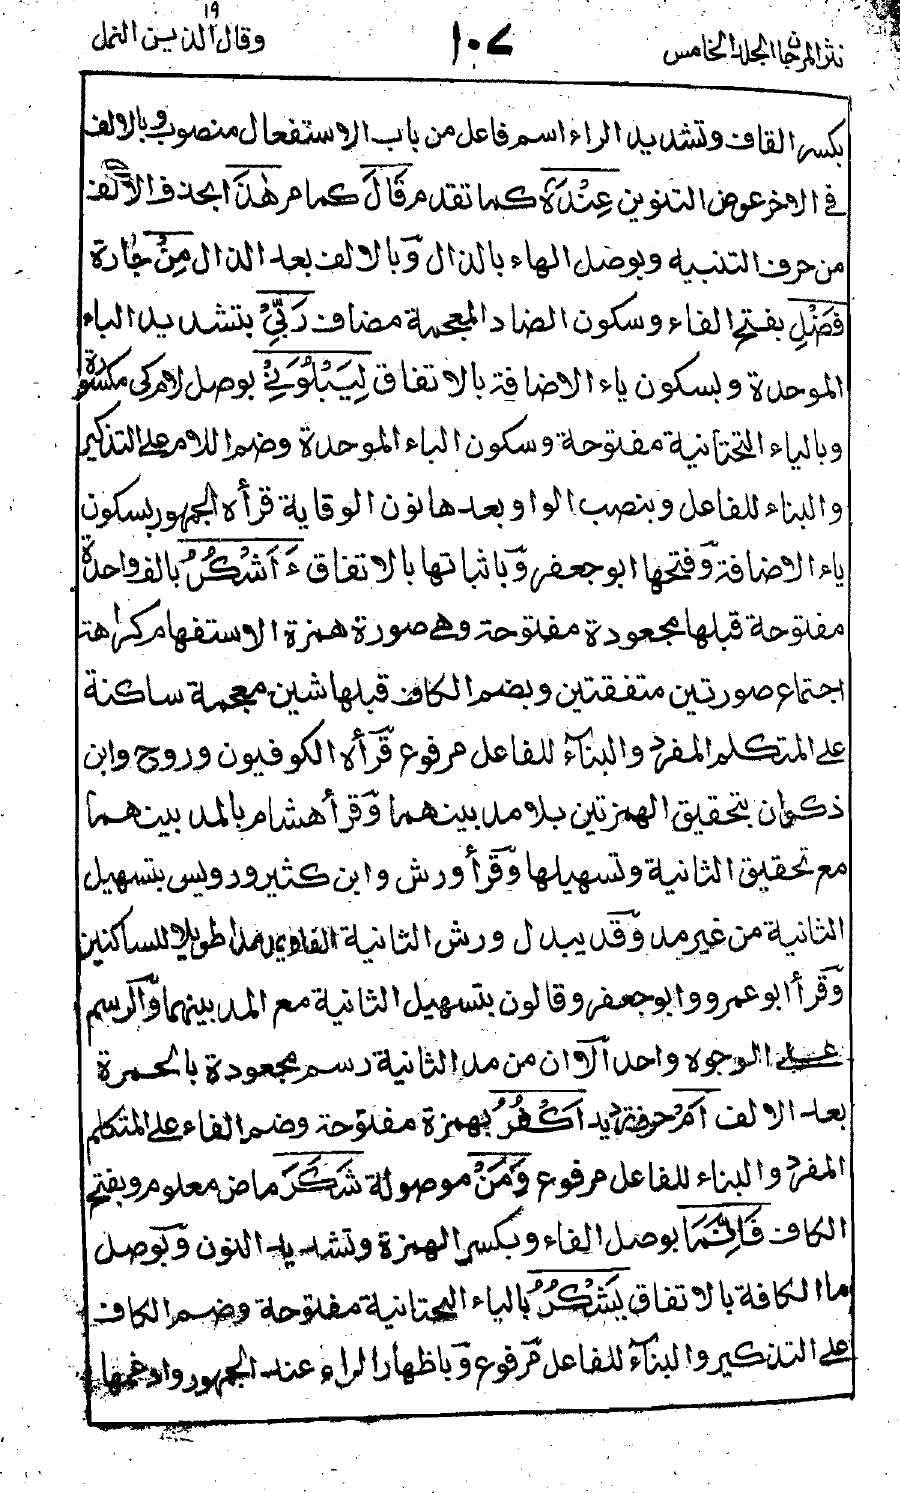 نثر المرجان الجلد الخامس
١٠٧
وقال الذين ١٩ النمل
بكسر القاف وتشديد الراء اسم فاعل من باب الاستفعال منصوب وبالالف
في الاخر عوض التنوين عِنْدَهٗ كما تقدم قَالَ كما مر هٰذَا بحذف الالف
من حرف التنبيه وبوصل الهاء بالذال وبالالف بعد الذال مِنْ جارة
فَضْلِ بفتح الفاء وسكون الضاد المعجمة مضاف رَبِّيْ بتشديد الباء
الموحدة وبسكون ياء الاضافة بالاتفاق لِيَبْلُوَنِيْ بوصل لام كى مكسورة
وبالياء التحتانية مفتوحة وسكون الباء الموحدة وضم اللام على التذكير
والبناء للفاعل وبنصب الواو بعدها نون الوقاية قرأه الجمهور بسكون
ياء الاضافة وفتحها ابو جعفر وباثباتها بالاتفاق ءَاَشْكُرُ بالف واحدة
مفتوحة قبلها مجعودة مفتوحة وهى صورة همزة الاستفهام كراهة
اجتماع صورتين متفقتين وبضم الكاف قبلها شين معجمة ساكنة
على المتكلم المفرد والبناء للفاعل مرفوع قرأه الكوفيون وروح وابن
ذكوان بتحقيق الهمزتين بلا مد بينهما وقرأ هشام بالمد بينهما
مع تحقيق الثانية وتسهيلها وقرأ ورش وابن كثير ورويس بتسهيل
الثانية من غير مد وقد يبدل ورش الثانية الفا ويمد مدا طويلا للساكنين
وقرأ ابو عمرو وابو جعفر وقالون بتسهيل الثانية مع المد بينهما والرسم
على الوجوه واحد الا ان من مد الثانية رسم مجعودة بالحمرة
بعد الالف اَمْ حرف ترديد اَكْفُرُ بهمزة مفتوحة وضم الفاء على المتكلم
المفرد والبناء للفاعل مرفوع وَمَنْ موصولة شَكَرَ ماض معلوم وبفتح
الكاف فَاِنَّمَا بوصل الفاء وبكسر الهمزة وتشديد النون وبوصل
ما الكافة بالاتفاق يَشْكُرُ بالياء التحتانية مفتوحة وضم الكاف
على التذكير والبناء للفاعل مرفوع وباظهار الراء عند الجمهور وادغمها